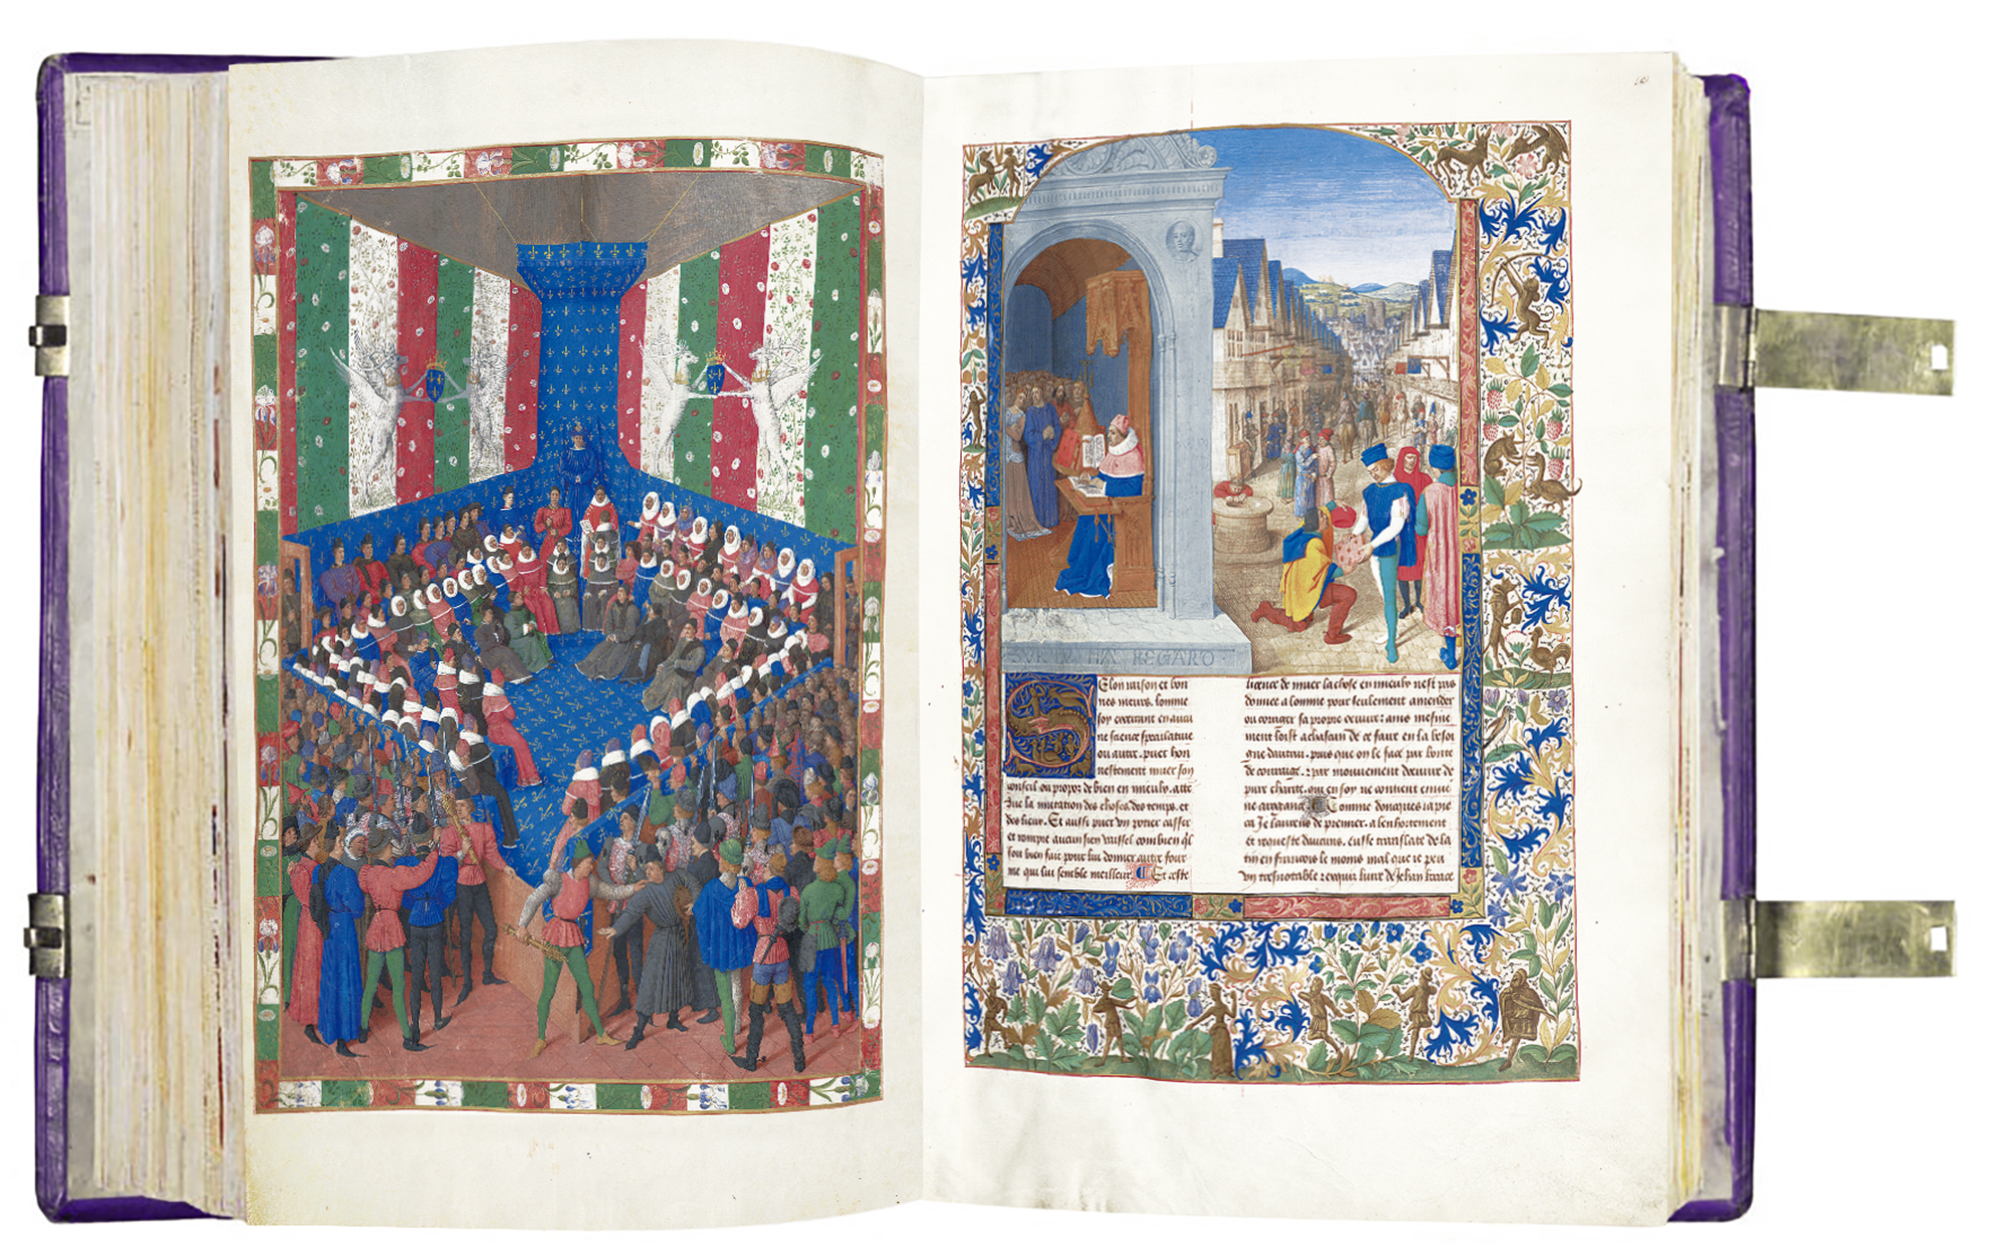 SVR LY NA REGARD
Selon raison et bon
nes meurs lomme
soy excercant en aucu
ne science speculatiue
ou autre. puet hon
nestement muer son
conseil ou propos de bien en mieulx. atte
due la mutation des choses des temps. et
des lieux. Et aussi puet vn potier casser
et rompre aucun sien vaissel combien ql
soit bien fait pour lui donner autre four
me qui lui semble meilleur. Et ceste
licence de muer la chose en mieulx nest pas
donnee a lomme pour seulement amender
ou corriger sa propre oeuure: ains mesme
ment loist a chascun de ce faire en la besoi
gne dautrui. puis que on le face par bonte
de courage. et par mouuement doeuure de
pure charite. qui en soy ne contient enuie
ne arrogance. Comme doncques ia pie
ca Je laurens de premier. a lenhortement
et requeste daucuns. eusse translate de la
tin en francois le moins mal que ie peu
vn tresnotable et exquis liure de Jehan bocace